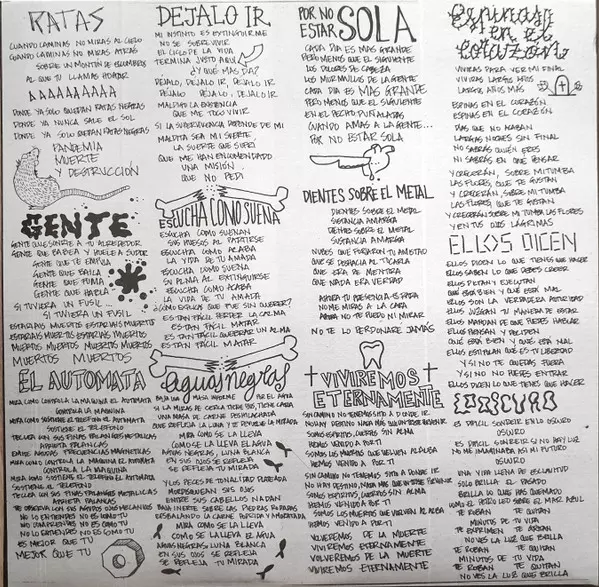 RATAS
CUANDO CAMINAS NO MIRAS AL CIELO
CUANDO CAMINAS NO MIRAS ATRÁS
SOBRE UN MONTÓN DE ESCOMBROS
AL QUE TU LLAMAS HOGAR
DONDE YA SOLO QUEDAN RATAS NEGRAS
DONDE YA NUNCA SALE EL SOL
DONDE YA SOLO QUEDAN RATAS NEGRAS
PANDEMIA
MUERTE
Y DESTRUCCIÓN
GENTE
GENTE QUE SONRIE A TU ALREDEDOR
GENTE QUE BABEA Y HUELE A SUDOR
GENTE QUE TE ENFILA
GENTE QUE BAILA
GENTE QUE FUMA
GENTE QUE HABLA
SI TUVIERA UN FUSIL...
SI TUVIERA UN FUSIL
ESTARIAIS MUERTOS ESTARIAIS MUERTOS
ESTARIAIS MUERTOS ESTARIAIS MUERTOS
MUERTOS MUERTOS MUERTOS MUERTOS
MUERTOS MUERTOS
EL AUTOMATA
MIRA COMO CONTROLA LA MAQUINA EL AUTOMATA
CONTROLA LA MAQUINA
MIRA COMO SOSTIENE EL TELEFONO EL AUTOMATA
SOSTIENE EL TELEFONO
TECLEA CON SUS FINAS FALANGES METALICAS
APRIETA PALANCAS
EMITE AGUDAS FRECUENCIAS MAGNETICAS
MIRA COMO CONTROLA LA MAQUINA EL AUTOMATA
CONTROLA LA MAQUINA
MIRA COMO SOSTIENE EL TELEFONO EL AUTOMATA
SOSTIENE EL TELEFONO
TECLEA CON SUS FINAS FALANGES METALICAS
APRIETA PALANCAS
TE OBSERVA CON SUS AGUDOS OJOS MECANICOS
NO LO ENTIENDES NO ES COMO TU
NO LO ENTIENDES NO ES COMO TU
NO LO ENTIENDES NO ES COMO TU
ES MEJOR QUE TU
MEJOR QUE TU
DEJALO IR
MI INSTINTO ES EXTINGUIRME
NO SE SOBREVIVIR
EL CICLO DE LA VIDA
TERMINA JUSTO AQUÍ
¿Y QUÉ MAS DA?
DEJALO, DEJALO IR, DEJALO IR
DEJALO, DEJALO, DEJALO IR
MALDITA LA EXISTENCIA
QUE ME TOCO VIVIR
SI LA SUPERVIVENCIA DEPENDE DE MI
MALDITA SEA MI SUERTE
LA SUERTE QUE SUFRÍ
QUE ME HAN ENCOMENDADO
UNA MISIÓN
QUE NO PEDI
ESCUCHA COMO SUENA
ESCUCHA COMO SUENAN
SUS HUESOS AL PARTIRSE
ESCUCHA COMO ACABA
LA VIDA DE TU AMADA
ESCUCHA COMO SUENA
SU ALMA AL EXTINGUIRSE
ESCUCHA COMO ACABA
LA VIDA DE TU AMADA
¿COMO EXPLICAS QUE FUE SIN QUERER?
ES TAN FÁCIL PERDER LA CALMA
ES TAN FÁCIL MATAR
ES TAN FÁCIL QUEBRAR UN ALMA
ES TAN FÁCIL MATAR
aguas negras
BAJA UNA MASA INFORME POR EL AGUA
SI LA MIRAS DE CERCA TIENE PIES, TIENE CARA
UNA MASA DE CARNE DESPELLEJADA
QUE REFLEJA LA LUNA Y TE REFLEJA LA MIRADA
MIRA COMO SE LA LLEVA
COMO SE LA LLEVA EL AGUA
AGUAS NEGRAS, LUNA BLANCA
EN SUS OJOS SE REFLEJA
SE REFLEJA TU MIRADA
Y LOS PECES DE TONALIDAD PLATEADA
MORDISQUEAN SUS OJOS
ENTRE SUS CABELLOS NADAN
BAJA INERTE SOBRE LAS PIEDRAS ROPADAS
RESBALANDO LA CARNE PUTRIDA Y AMORATADA
MIRA COMO SE LA LLEVA
COMO SE LA LLEVA EL AGUA
AGUAS NEGRAS, LUNA BLANCA
EN SUS OJOS SE REFLEJA
SE REFLEJA TU MIRADA
POR NO ESTAR SOLA
CADA DIA ES MAS GRANDE
PERO MENOS QUE EL SIGUIENTE
LOS DOLORES DE CABEZA
LOS MURMULLOS DE LA GENTE
CADA DIA ES MAS GRANDE
PERO MENOS QUE EL SIGUIENTE
EN EL PECHO PUÑALADAS
CUANDO AMAS A LA GENTE...
POR NO ESTAR SOLA
DIENTES SOBRE EL METAL
DIENTES SOBRE EL METAL
SUSTANCIA AMARGA
DIENTES SOBRE EL METAL
SUSTANCIA AMARGA
NUBES QUE FORMABAN TU AMISTAD
QUE SE DESHACIA AL TOCARLA
QUE ERA DE MENTIRA
QUE NADA ERA VERDAD
AHORA TU PRESENCIA ESPANTA
NO ME MIRAS A LA CARA
AHORA NO TE PUEDO NI MIRAR
NO TE LO PERDONARE JAMÁS
VIVIREMOS ETERNAMENTE
SIN CAMINO NO TENEMOS SITIO A DONDE IR
NO HAY DESTINO NADA MAS QUE ENTRE FICHAR
SOMOS ESPIRITUS, CUERPOS SIN ALMA
HEMOS VENIDO A POR TI
SOMOS LOS MUERTOS QUE VUELVEN AL ALBA
HEMOS VENIDO A POR TI
SIN CAMINO NO TENEMOS SITIO A DONDE IR
NO HAY DESTINO, NADA MAS QUE
SOMOS ESPIRITUS, CUERPOS SIN ALMA
HEMOS VENIDO A POR TI
SOMOS LOS MUERTOS QUE VUELVEN AL ALBA
HEMOS VENIDO A POR TI
VOLVEREMOS DE LA MUERTE
VIVIREMOS ETERNAMENTE
VOLVEREMOS DE LA MUERTE
VIVIREMOS ETERNAMENTE
Espinas en el Corazón
VIVIRAS PARA VER MI FINAL
VIVIRAS LARGOS AÑOS
LARGOS AÑOS MAS
ESPINAS EN EL CORAZÓN
ESPINAS EN EL CORAZÓN
DIAS QUE NO ACABAN
LARGAS NOCHES SIN FINAL
NO SABRÁS QUIÉN ERES
NI SABRÁS EN QUE PENSAR
Y CRECERÁN, SOBRE MI TUMBA
LAS FLORES, QUE TE GUSTAN
Y CRECERÁN, SOBRE MI TUMBA
LAS FLORES, QUE TE GUSTAN
Y CRECERÁN SOBRE MI TUMBA LAS FLORES
Y EN TUS OJOS LÁGRIMAS
ELLOS DICEN
ELLOS DICEN LO QUE TIENES QUE HACER
ELLOS SABEN LO QUE DEBES CREER
ELLOS DICTAN Y EJECUTAN
QUE ESTÁ BIEN Y QUE ESTÁ MAL
ELLOS SON LA VERDADERA AUTORIDAD
ELLOS JUZGAN TU MANERA DE ESTAR
ELLOS MANDAN DE QUE PUEDES HABLAR
ELLOS PIENSAN Y DECIDEN
QUE ESTÁ BIEN Y QUE ESTÁ MAL
ELLOS ESTIPULAN QUE ES TU LIBERTAD
Y SI NO TE QUEDAS FUERA
Y SI NO NO PUEDES ENTRAR
ELLOS DICEN LO QUE TIENES QUE HACER
OSCURO
ES DIFICIL SONREIR EN LO OSCURO
OSCURO
ES DIFICIL SONREIR SI NO HAY LUZ
NO ME IMAGINABA ASI MI FUTURO
OSCURO
UNA VIDA LLENA DE ESCLAVITUD
SOLO BRILLA EL PASADO
BRILLA LO QUE HAS QUEMADO
COMO EL PERRO LEO SOBRE EL MAR AZUL
TE ROBAN TE QUITAN
MINUTOS DE TU VIDA
TE EXPRIMEN TE ASFIXIAN
NO VES LA LUZ QUE BRILLA
TE ROBAN TE QUITAN
MINUTOS DE TU VIDA
TE ROBAN TE QUITAN
NO VES LA LUZ QUE BRILLA